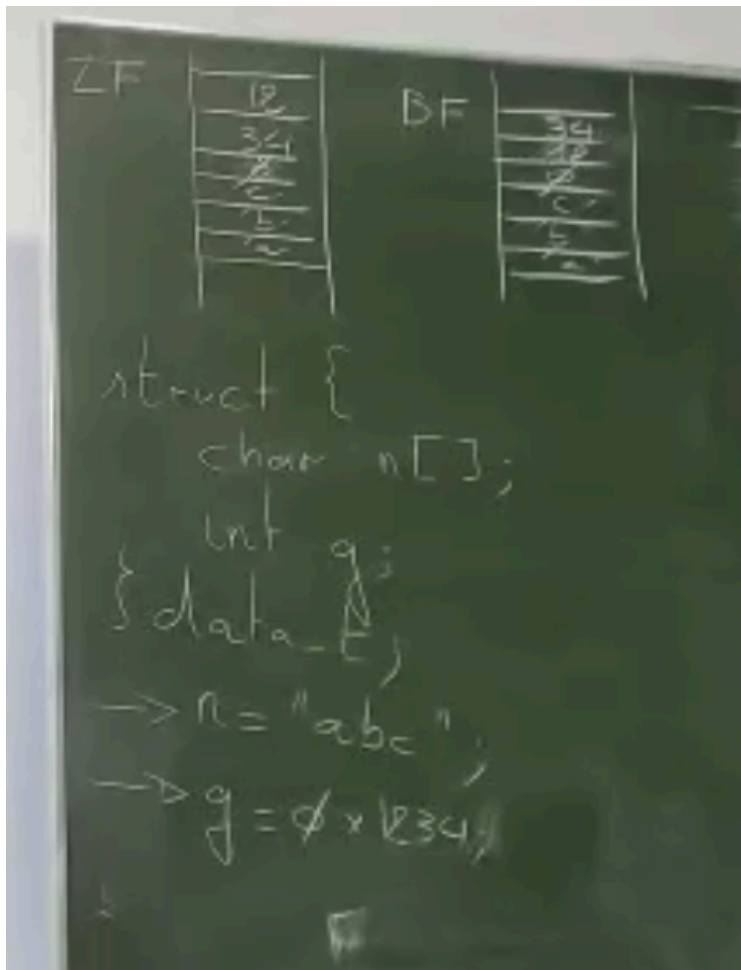 LF
12
34
ø
c
b
a
BF
ø
c
b
a
struct {
char n[];
int g;
} data_t;
→ n = "abc";
→ g = øx1234;